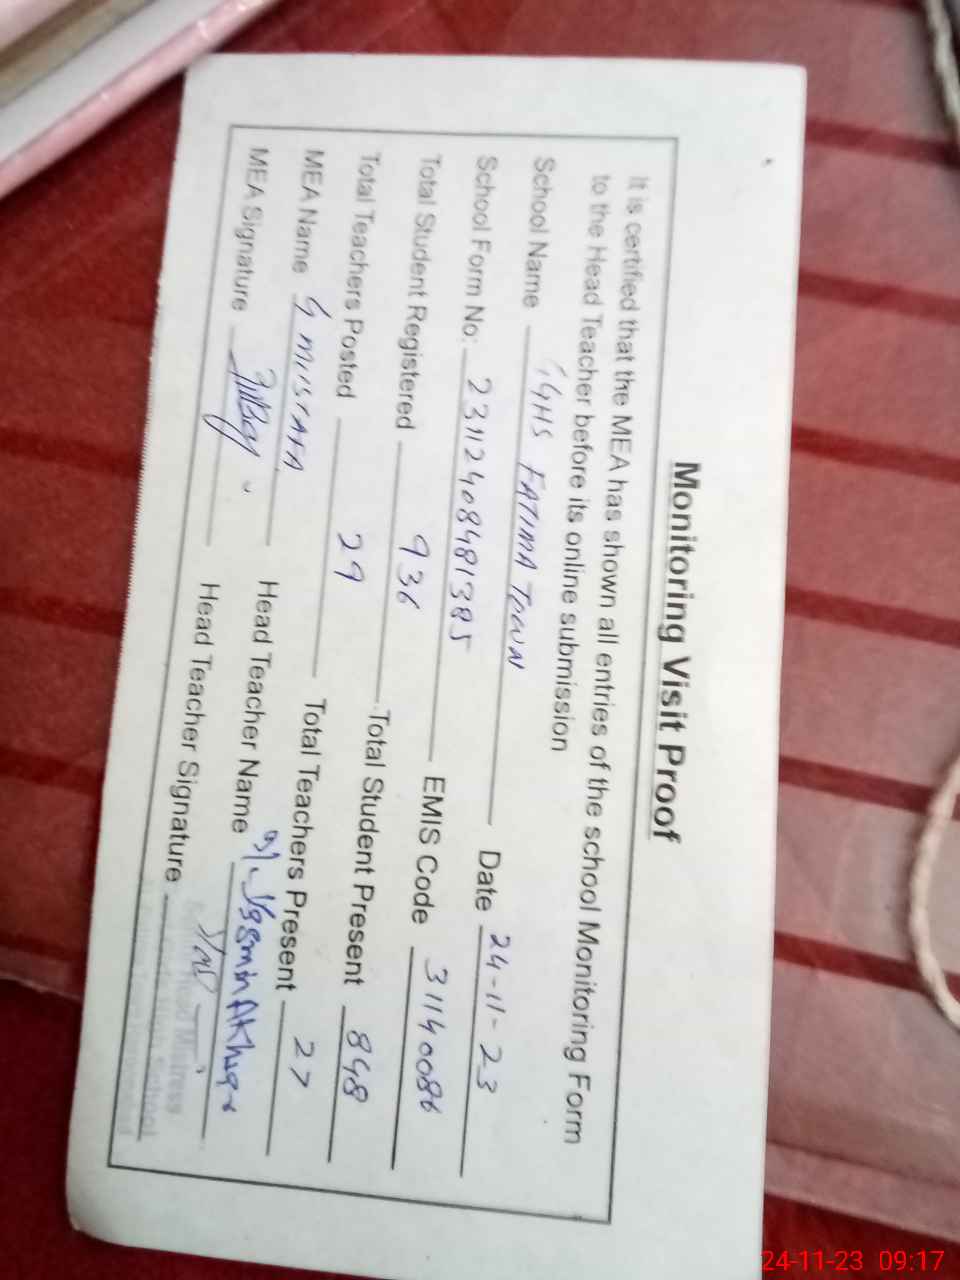 Monitoring Visit Proof
It is certified that the MEA has shown all entries of the school Monitoring Form
to the Head Teacher before its online submission
School Name GGHS FATIMA TOWN Date 24-11-23
School Form No: 23112408481385 EMIS Code 31140086
Total Student Registered 936 Total Student Present 848
Total Teachers Posted 29 Total Teachers Present 27
MEA Name G MUSTAFA Head Teacher Name Yasmin Akhtar
MEA Signature Head Teacher Signature
Head Mistress
School
24-11-23 09:17